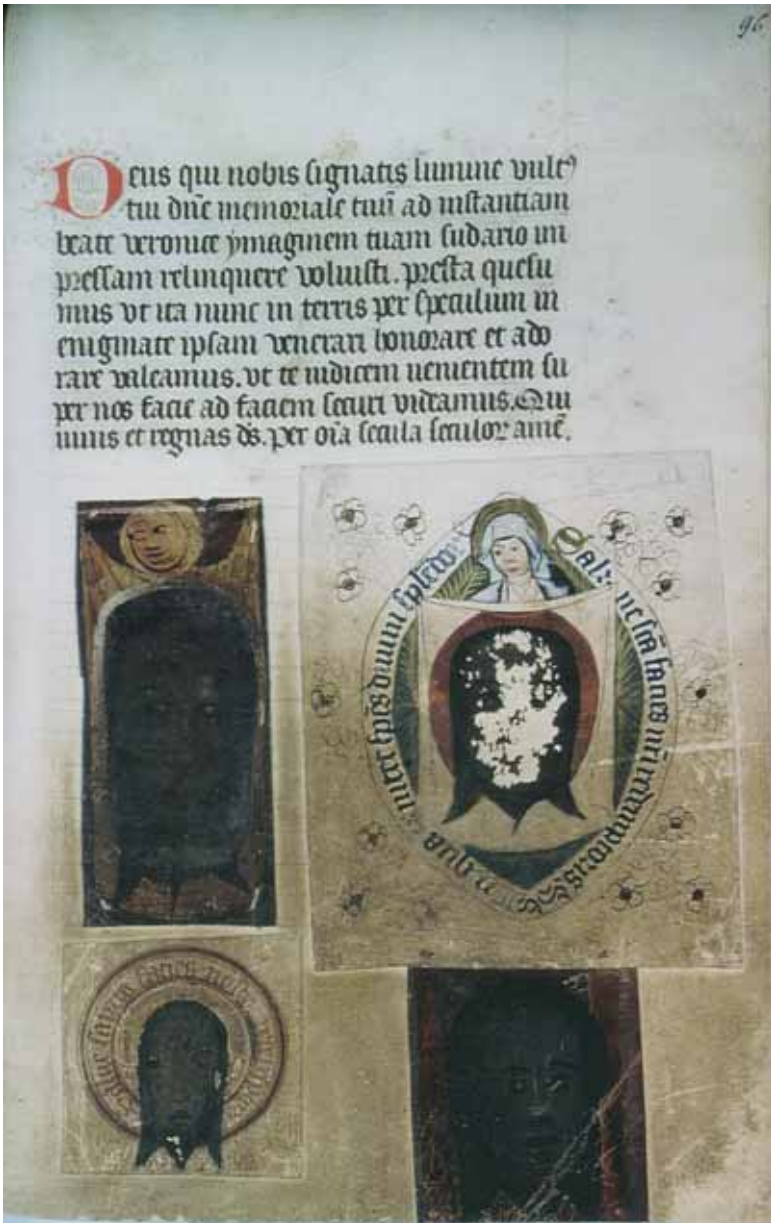 96
Deus qui nobis signatis lumine vult9
tui dñe memoriale tuũ ad instantiam
beate veronice ymaginem tuam sudario im
pressam relinquere voluisti. presta quesu
mus vt ita nunc in terris per speculum in
enigmate ipsam venerari honorare et ado
rare valeamus. vt te iudicem uenientem su
per nos facie ad faciem securi videamus. Qui
uiuis et regnas ds. per oĩa secula seculoꝝ amẽ.
Salue sc̃a facies nr̃i redemptoris
in qua nitet spẽs diuini splẽdor
Salue sancta facies nostri